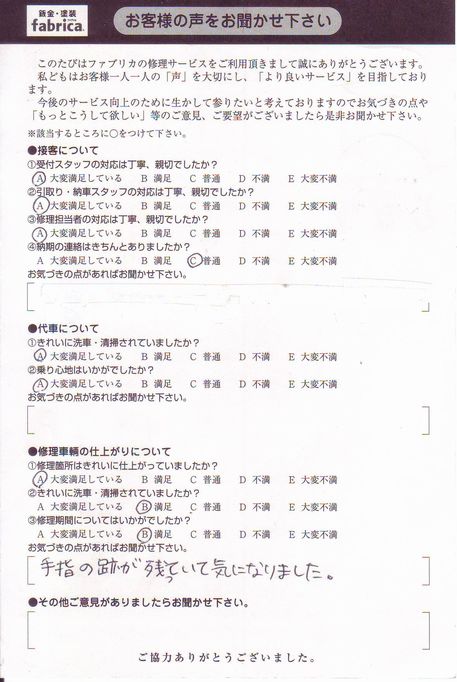 鈑金・塗装
fabrica.
お客様の声をお聞かせ下さい
このたびはファブリカの修理サービスをご利用頂きまして誠にありがとうございます。
私どもはお客様一人一人の「声」を大切にし、「より良いサービス」を目指しており
ます。
今後のサービス向上のために生かして参りたいと考えておりますのでお気づきの点や
「もっとこうして欲しい」等のご意見、ご要望がございましたら是非お聞かせ下さい。
※該当するところに○をつけて下さい。
●接客について
①受付スタッフの対応は丁寧、親切でしたか？
A 大変満足している B 満足 C 普通 D 不満 E 大変不満
②引取り・納車スタッフの対応は丁寧、親切でしたか？
A 大変満足している B 満足 C 普通 D 不満 E 大変不満
③修理担当者の対応は丁寧、親切でしたか？
A 大変満足している B 満足 C 普通 D 不満 E 大変不満
④納期の連絡はきちんとありましたか？
A 大変満足している B 満足 C 普通 D 不満 E 大変不満
お気づきの点があればお聞かせ下さい。
●代車について
①きれいに洗車・清掃されていましたか？
A 大変満足している B 満足 C 普通 D 不満 E 大変不満
②乗り心地はいかがでしたか？
A 大変満足している B 満足 C 普通 D 不満 E 大変不満
お気づきの点があればお聞かせ下さい。
●修理車輌の仕上がりについて
①修理箇所はきれいに仕上がっていましたか？
A 大変満足している B 満足 C 普通 D 不満 E 大変不満
②きれいに洗車・清掃されていましたか？
A 大変満足している B 満足 C 普通 D 不満 E 大変不満
③修理期間についてはいかがでしたか？
A 大変満足している B 満足 C 普通 D 不満 E 大変不満
お気づきの点があればお聞かせ下さい。
手指の跡が残っていて気になりました。
●その他ご意見がありましたらお聞かせ下さい。
ご協力ありがとうございました。